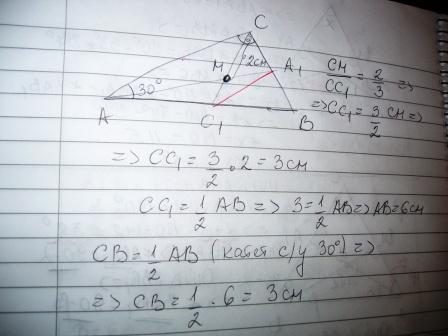 C
2cm
M
A₁
30°
A
C₁
B
CM/CC₁ = 2/3 =>
=> CC₁ = 3/2 CM =>
=> CC₁ = 3/2 . 2 = 3cm
CC₁ = 1/2 AB => 3 = 1/2 AB => AB = 6cm
CB = 1/2 AB (катет с/у 30°) =>
=> CB = 1/2 . 6 = 3cm